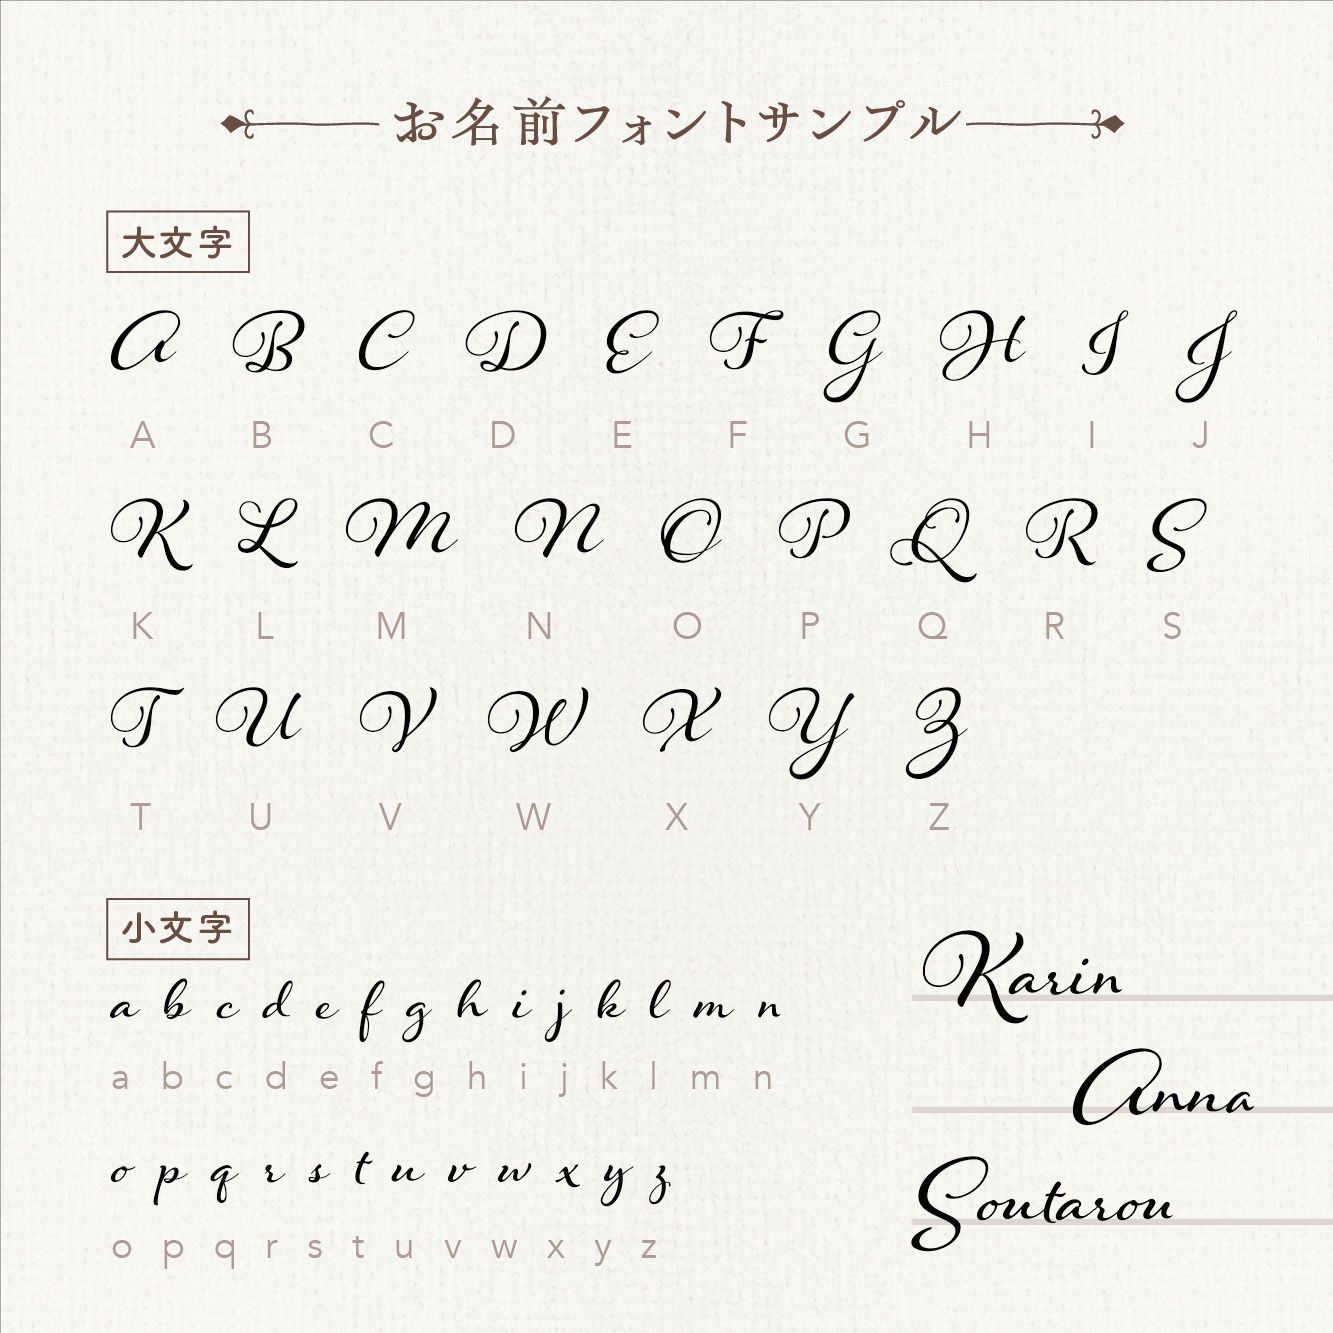 お名前フォントサンプル
大文字
A B C D E F G H I J
A B C D E F G H I J
K L M N O P Q R S
K L M N O P Q R S
T U V W X Y Z
T U V W X Y Z
小文字
a b c d e f g h i j k l m n
a b c d e f g h i j k l m n
o p q r s t u v w x y z
o p q r s t u v w x y z
Karin
Anna
Soutarou